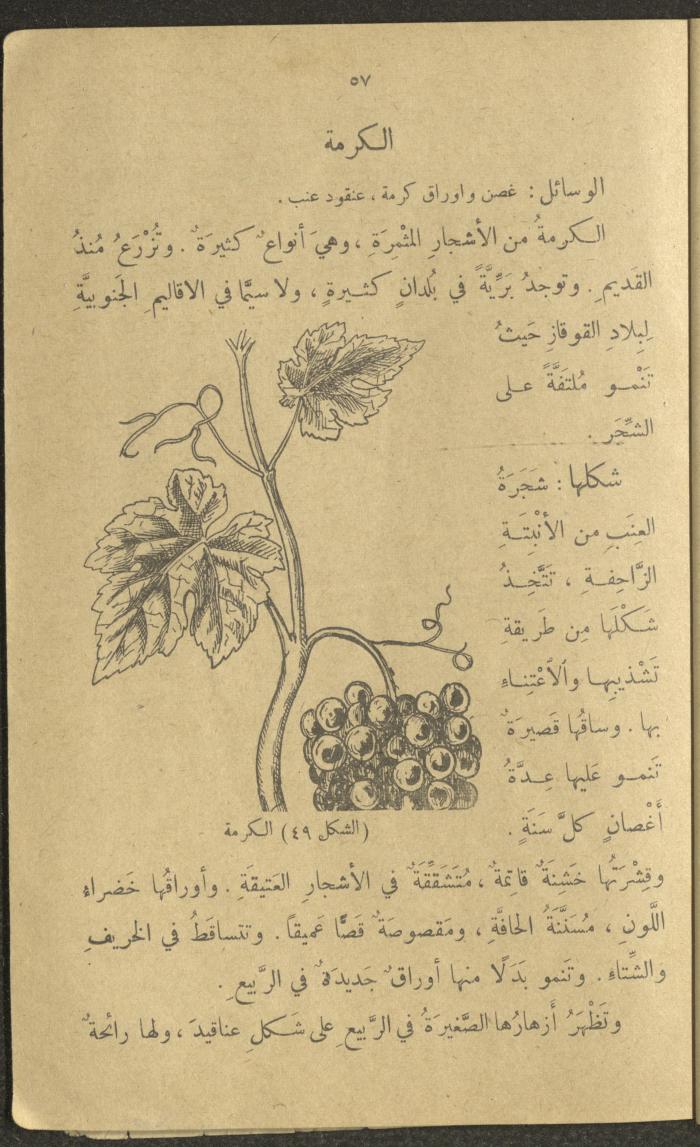 ٥٧
الكرمة
الوسائل: غصن واوراق كرمة، عنقود عنب.
الكرمةُ من الأشجارِ المثْمِرَةِ، وهيَ أنواعٌ كثيرَةٌ. وتُزْرَعُ مُنذُ
القَديمِ. وتوجدُ بَرِّيَّةً في بُلدانٍ كثيرةٍ، ولا سيَّما في الاقاليمِ الجَنوبيَّةِ
لِبِلادِ القوقازِ حَيثُ
تَنْمو مُلتَفَّةً على
الشَّجَرِ.
شكلها: شَجَرَةُ
العِنَبِ من الأنْبِتَةِ
الزَّاحِفةِ، تَتَّخِذُ
شَكْلَها مِن طَريقةِ
تَشْذيبِها والاَعْتِناءِ
بها. وساقُها قَصيرَةٌ
تَنمو عَليها عِدَّةُ
أَغْصانٍ كلَّ سَنَةٍ.
(الشكل ٤٩) الكرمة
وقِشْرَتُها خَشِنَةٌ قاتِمَةٌ، مُتَشَقِّقَةٌ في الأشجارِ العَتيقَةِ. وأوراقُها خَضراء
اللَّونِ، مُسَنَّنَةُ الحافَّةِ، ومَقصوصَةٌ قَصًّا عَميقاً. وتتساقَطُ في الخريفِ
والشِّتاءِ. وتَنمو بَدَلًا منها أوراقٌ جَديدَةٌ في الرَّبيعِ.
وتَظْهَرُ أَزهارُها الصَّغيرَةُ في الرَّبيعِ على شَكلِ عناقيدَ، ولها رائحةٌ